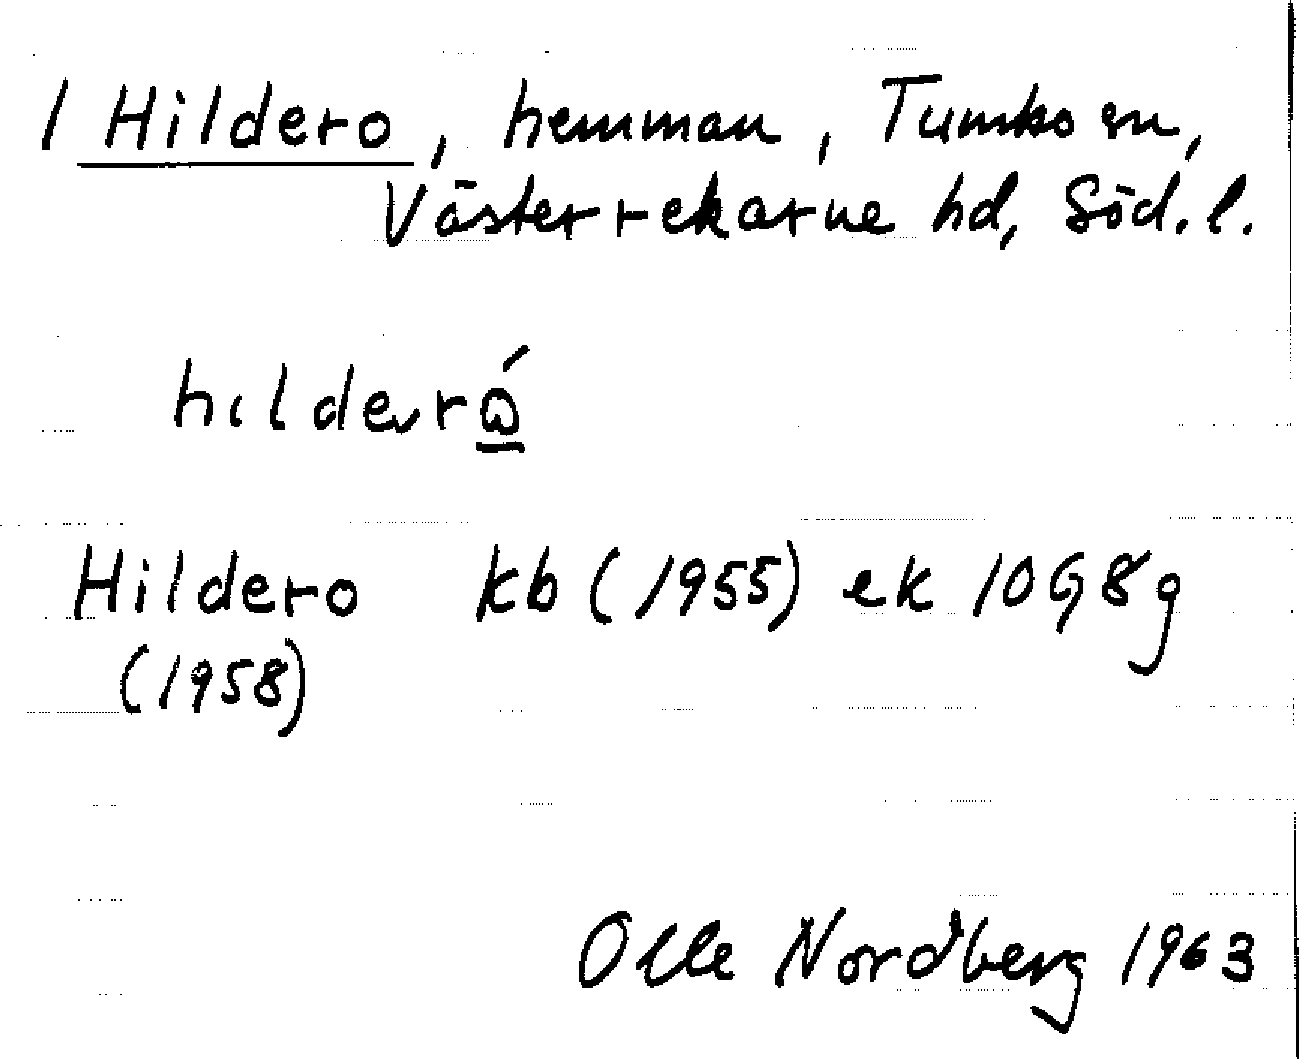 1 Hildero, hemman, Tumbo sn,
Västerrekarne hd, Söd. l.
hilderó
Hildero kb (1955) ek 10G8g
(1958)
Olle Nordberg 1963